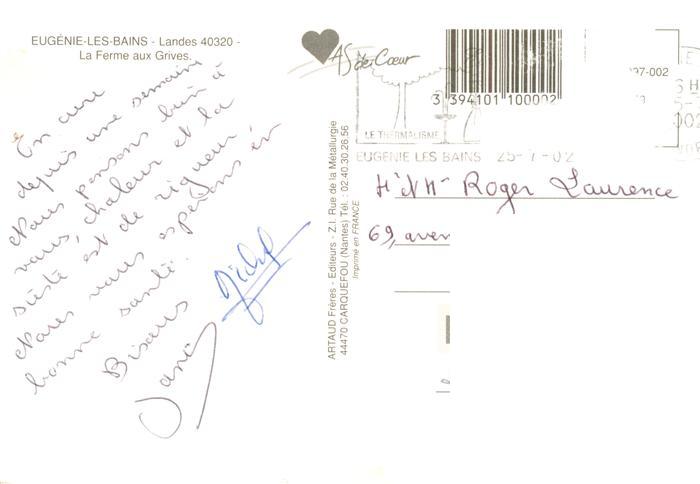 EUGÉNIE-LES-BAINS - Landes 40320 -
La Ferme aux Grives.
En cure
depuis une semaine
Nous pensons bien à
vous, chaleur et la
sieste est de rigueur
Nous vous espérons en
bonne santé.
Bisous
Michel
ARTAUD Frères - Editeurs - Z.I. Rue de la Métallurgie
44470 CARQUEFOU (Nantes) Tél. : 02.40.30.26.56
Imprimé en FRANCE
As de Cœur
3 394101 100002
97-002
LE THERMALISME
EUGENIE LES BAINS 25-7-02
Roger Laurence
69, aven